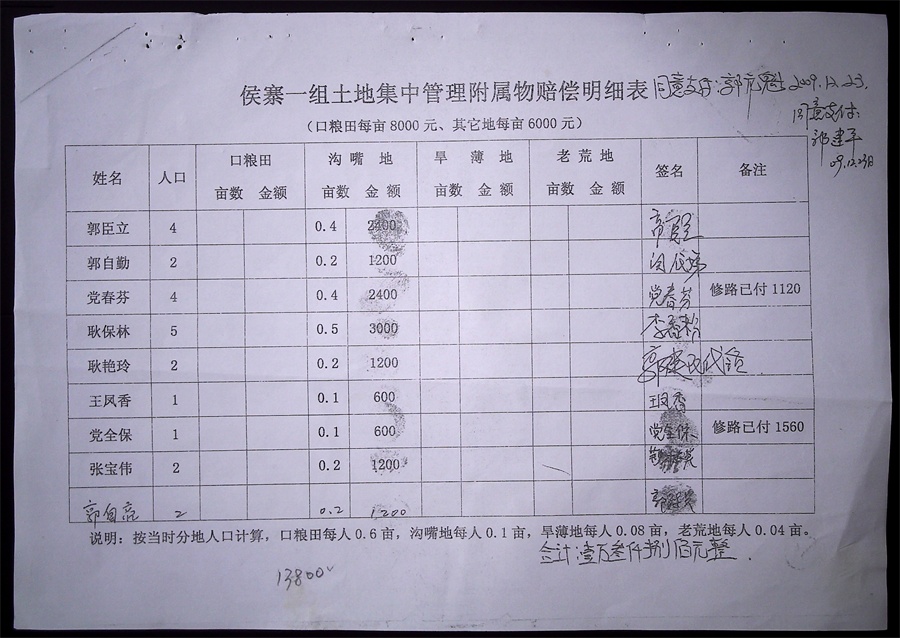 侯寨一组土地集中管理附属物赔偿明细表 同意支付:郭 2009.12.23.
(口粮田每亩8000元、其它地每亩6000元) 同意支付:
郭建平
09.12.23日
姓名 人口 口粮田 沟嘴地 旱薄地 老荒地 签名 备注
亩数 金额 亩数 金额 亩数 金额 亩数 金额
郭臣立 4 0.4 2400
郭自勤 2 0.2 1200
党春芬 4 0.4 2400 党春芬 修路已付1120
耿保林 5 0.5 3000 李春
耿艳玲 2 0.2 1200 郭建民代领
王凤香 1 0.1 600 王凤香
党全保 1 0.1 600 党全保 修路已付1560
张宝伟 2 0.2 1200
郭自亮 2 0.2 1200
说明:按当时分地人口计算,口粮田每人0.6亩,沟嘴地每人0.1亩,旱薄地每人0.08亩,老荒地每人0.04亩。
合计:壹万叁仟捌佰元整.
13800